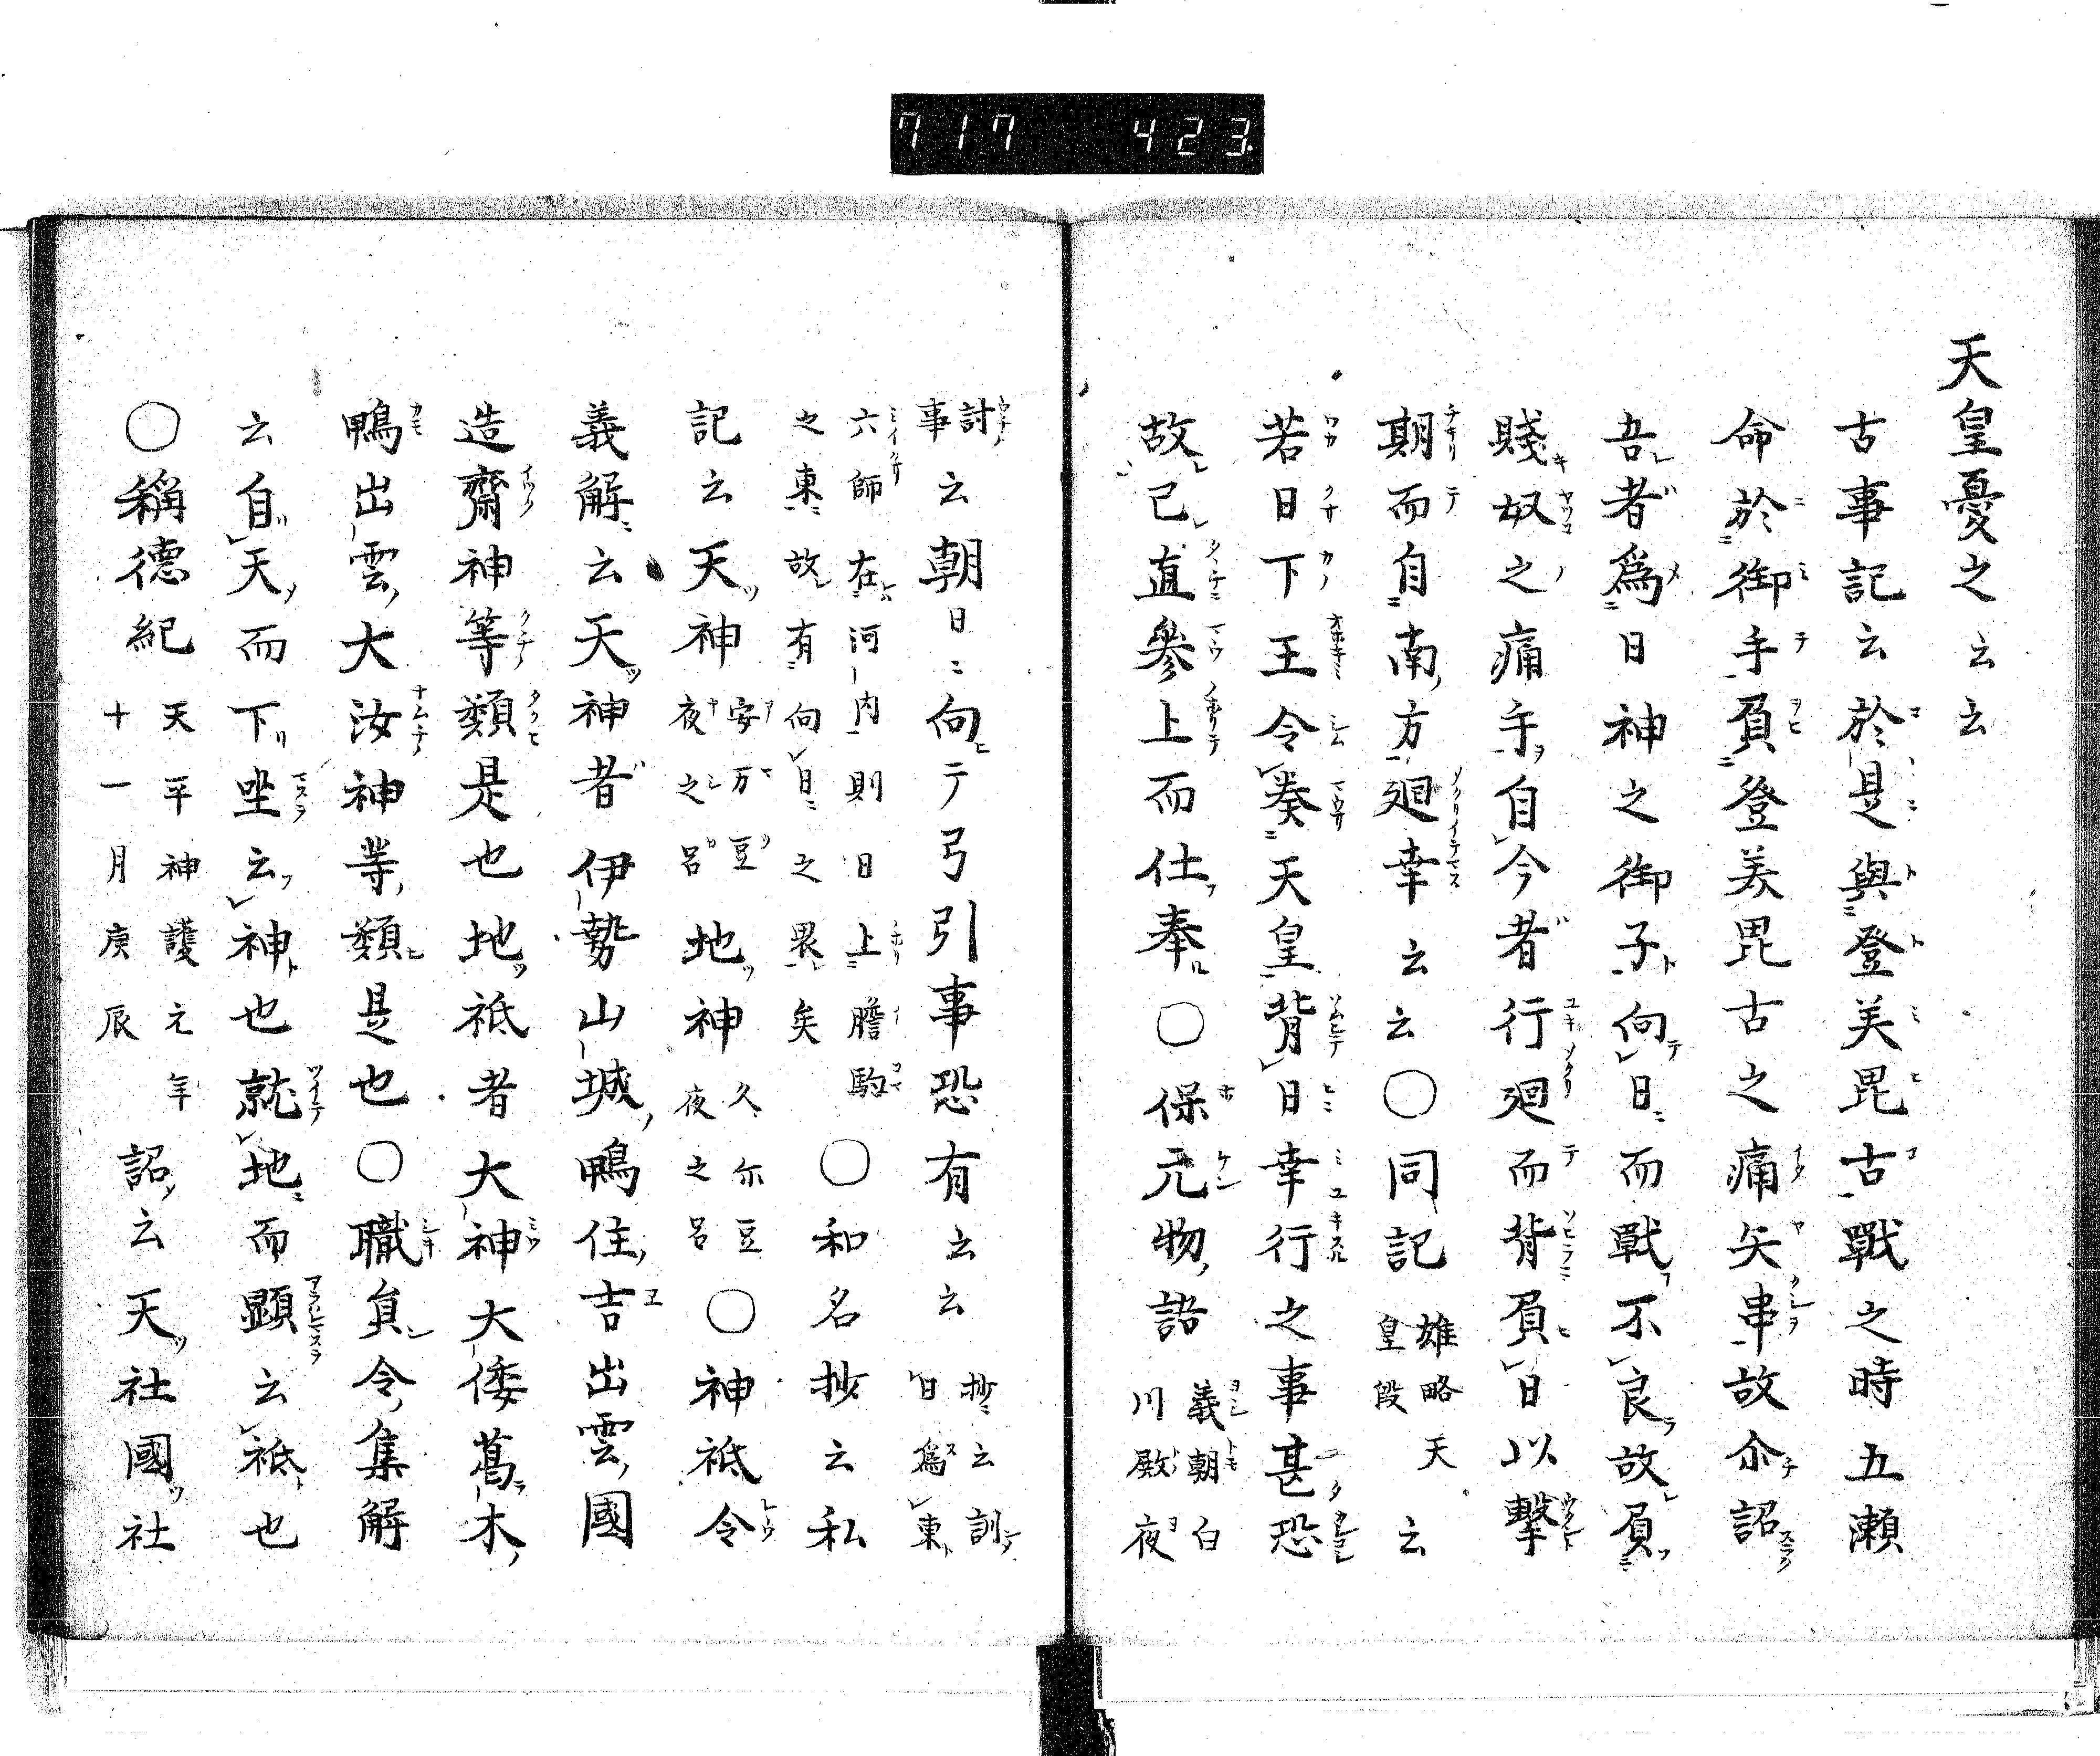 717 423
天皇憂之云云
古事記云於是與登美毘古戰之時五瀬
命於御手負登美毘古之痛矢串故尒詔
吾者爲日神之御子向日而戰不良故負
賤奴之痛手自今者行廻而背負日以擊
期而自南方廻幸云云○同記雄略天皇段云
若日下王令奏天皇背日幸行之事甚恐
故己直參上而仕奉○保元物語義朝白川殿夜
討事云朝日ニ向テ弓引事恐有云云抄云訓日爲東
六師在河内則日上膽駒之東故有向日之畏矣○和名抄云私
記云天神安万豆夜之呂地神久尓豆夜之呂○神祇令
義解云天神者伊勢山城鴨住吉出雲國
造齋神等類是也地祇者大神大倭葛木
鴨出雲大汝神等類是也○職員令集解
云自天而下坐云神也就地而顯云祇也
○稱德紀天平神護元年十一月庚辰詔云天社國社